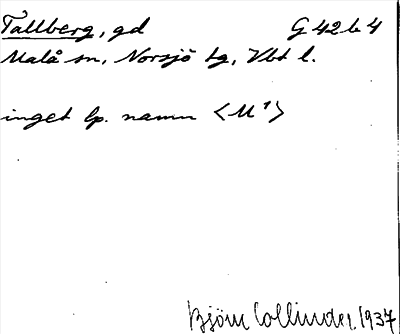 Tallberg, gd G 42 b 4
Malå sn, Norsjö tg, Vbt l.
inget lp. namn <M¹>
Björn Collinder 1937